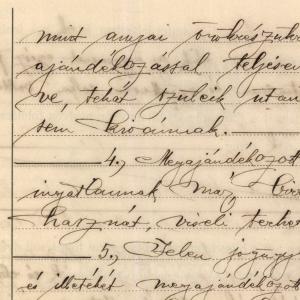 mint anyai örökrészükre
ajándékozással teljesen
ve, tehát szüleik után
sem kivánnak.
4., Megajándékozott
ingatlannak már bir
hasznát, viseli terhe
5., Jelen jogügy
és illetékét megajándékozott